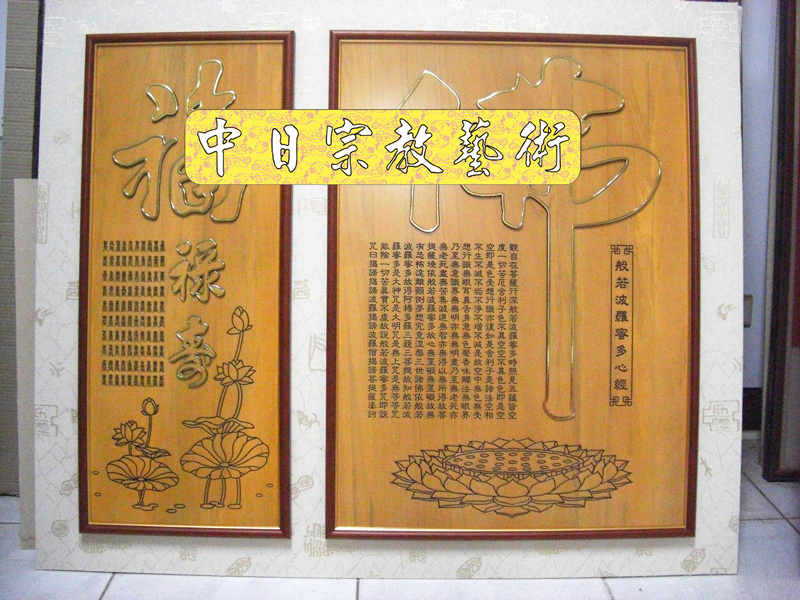 中日宗教藝術
佛
般若波羅蜜多心經
觀自在菩薩行深般若波羅蜜多時照見五蘊皆空
度一切苦厄舍利子色不異空空不異色色即是空
空即是色受想行識亦復如是舍利子是諸法空相
不生不滅不垢不淨不增不減是故空中無色無受
想行識無眼耳鼻舌身意無色聲香味觸法無眼界
乃至無意識界無無明亦無無明盡乃至無老死亦
無老死盡無苦集滅道無智亦無得以無所得故菩
提薩埵依般若波羅蜜多故心無罣礙無罣礙故無
有恐怖遠離顛倒夢想究竟涅槃三世諸佛依般若
波羅蜜多故得阿耨多羅三藐三菩提故知般若波
羅蜜多是大神咒是大明咒是無上咒是無等等咒
能除一切苦真實不虛故說般若波羅蜜多咒即說
咒曰揭諦揭諦波羅揭諦波羅僧揭諦菩提薩婆訶
福
祿
壽